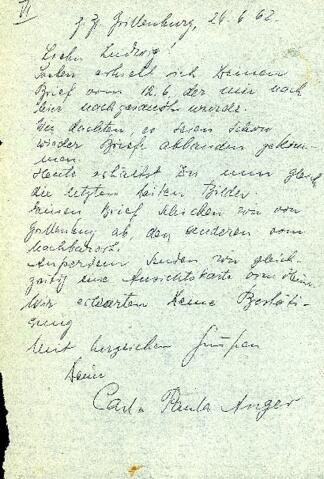 VI
z. Zt. Grillenburg, 26.6.62.
Lieber Ludwig!
Soeben erhielt ich Deinen
Brief vom 12.6. der mir nach
hier nachgesandt wurde.
Wir dachten, es seien schon
wieder Briefe abhanden gekom-
men.
Heute erhältst Du nun gleich
die letzten beiden Bilder.
Diesen Brief schicken wir von
Grillenburg ab, den anderen vom
Nachbarort.
Ausserdem senden wir gleich-
zeitig eine Ansichtskarte von hier.
Wir erwarten Deine Bestäti-
gung
Mit herzlichen Grüßen
Dein
Carl u. Paula Anger